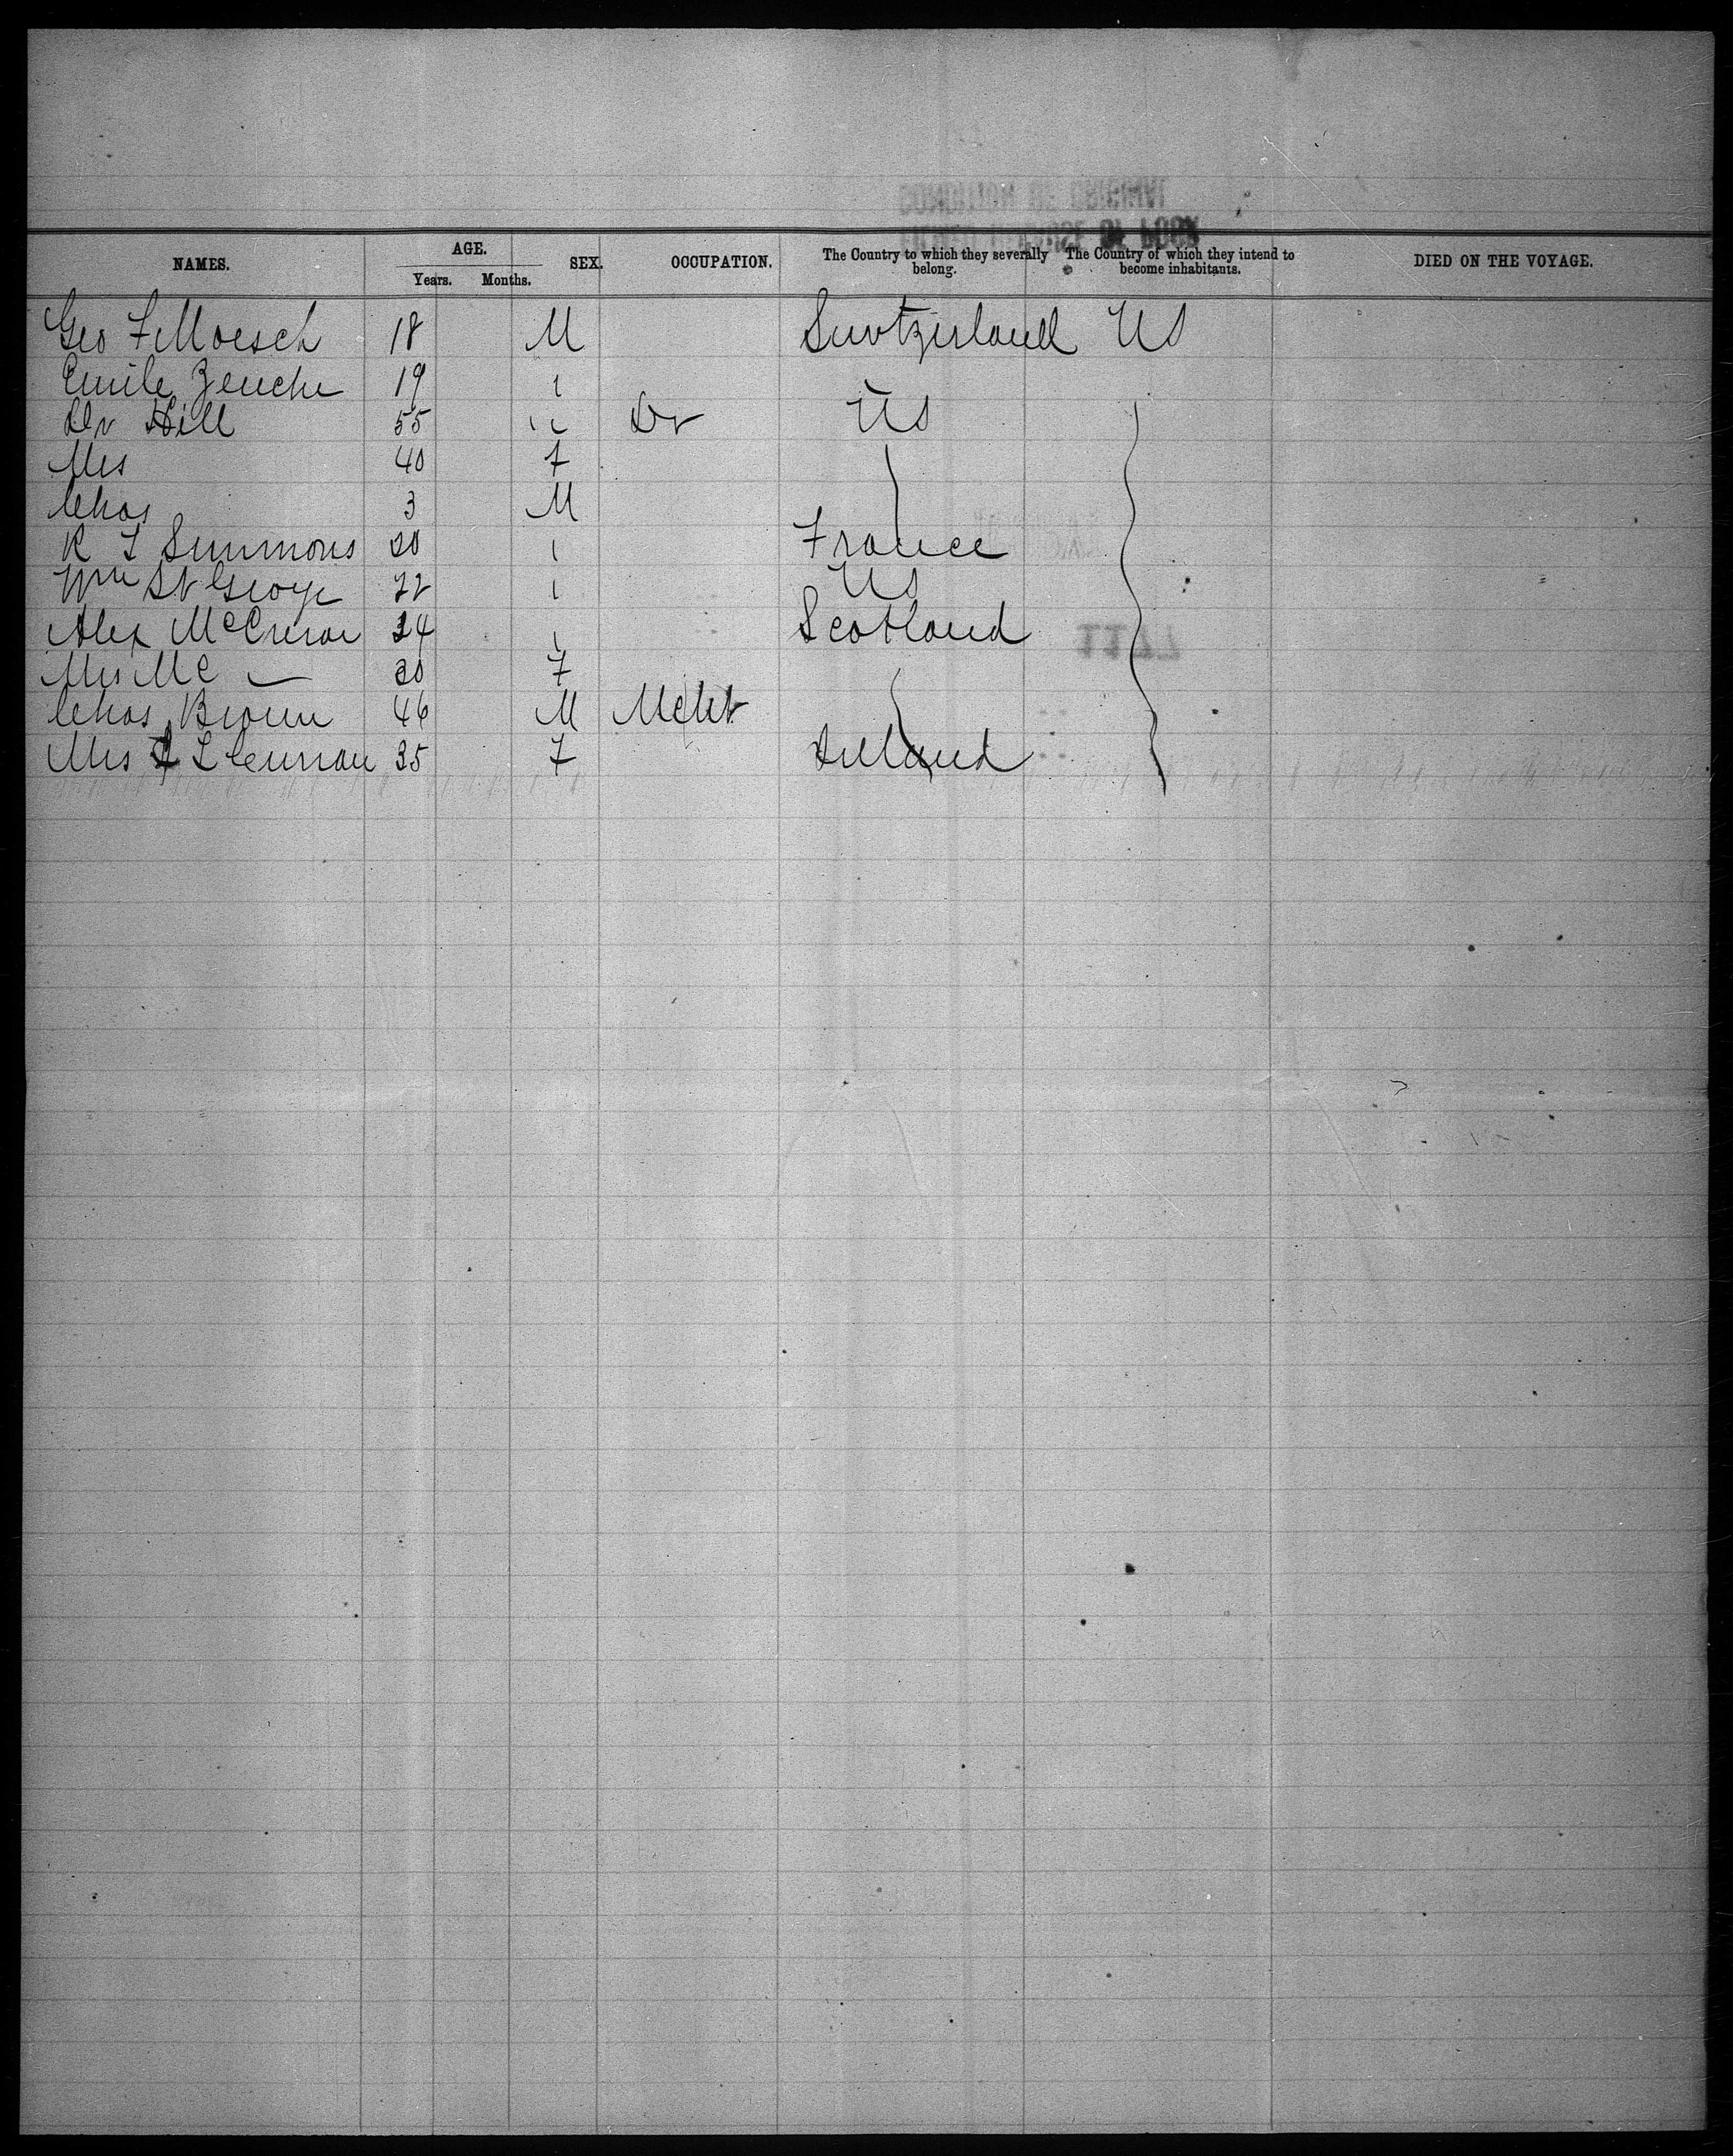 NAMES. AGE. Years. Months. SEX. OCCUPATION. The Country to which they severally belong. The Country of which they intend to become inhabitants. DIED ON THE VOYAGE.
Geo F Moesch 18 M Switzerland US
Emile Zeuche 19 "
Dr Hill 55 " Dr US
Mrs 40 F
Chas 3 M
R L Simmons 20 " France
Wm St George 22 " US
Alex McCrerar 24 " Scotland
Mrs Mc — 20 F
Chas Brown 46 M Mcht
Mrs L Clennan 35 F Ireland
1177